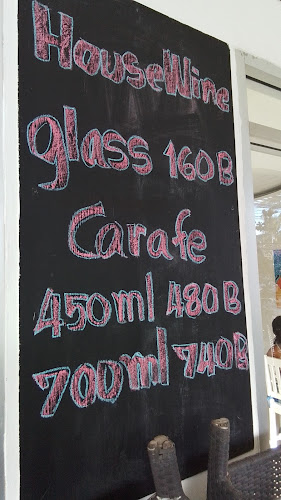 HouseWine
glass 160B
Carafe
450ml 480B
700ml 740B